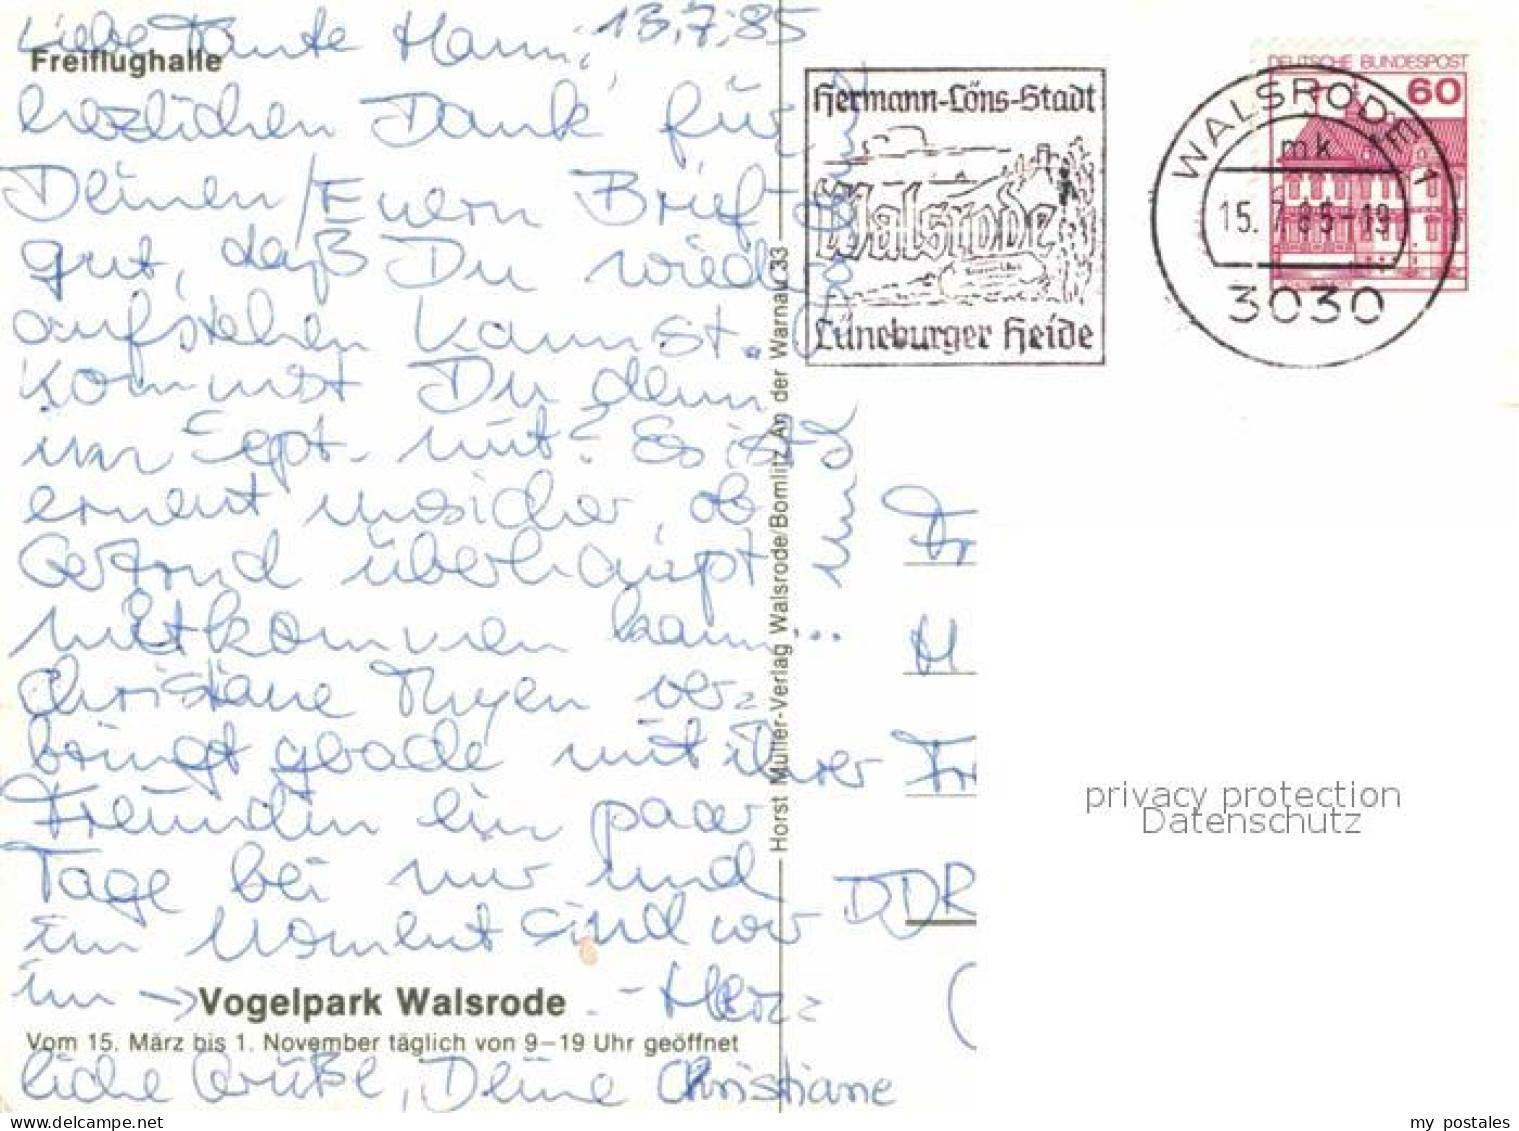 Liebe Tante Hanni, 13.7.85
Freiflughalle
herzlichen Dank für
Deinen/Euern Brief
gut, daß Du wieder
aufstehen kannst.
Kommst Du denn
im Sept. mit? Es ist
erneut unsicher, ob
Gertrud überhaupt
mitkommen kann...
Christiane Thyen ver=
bringt gerade mit ihrer
Freundin ein paar
Tage bei mir und
im Moment sind wir
im → Vogelpark Walsrode. - Herz=
Vom 15. März bis 1. November täglich von 9–19 Uhr geöffnet
liche Grüße, Deine Christiane
und
Horst Müller-Verlag Walsrode/Bomlitz, An der Warnau 33
Hermann-Löns-Stadt
Walsrode
Lüneburger Heide
DEUTSCHE BUNDESPOST
60
WALSRODE 1
mk
15.7.85-19
3030
Fr
H
Fr
DDR
(
privacy protection
Datenschutz
my postales